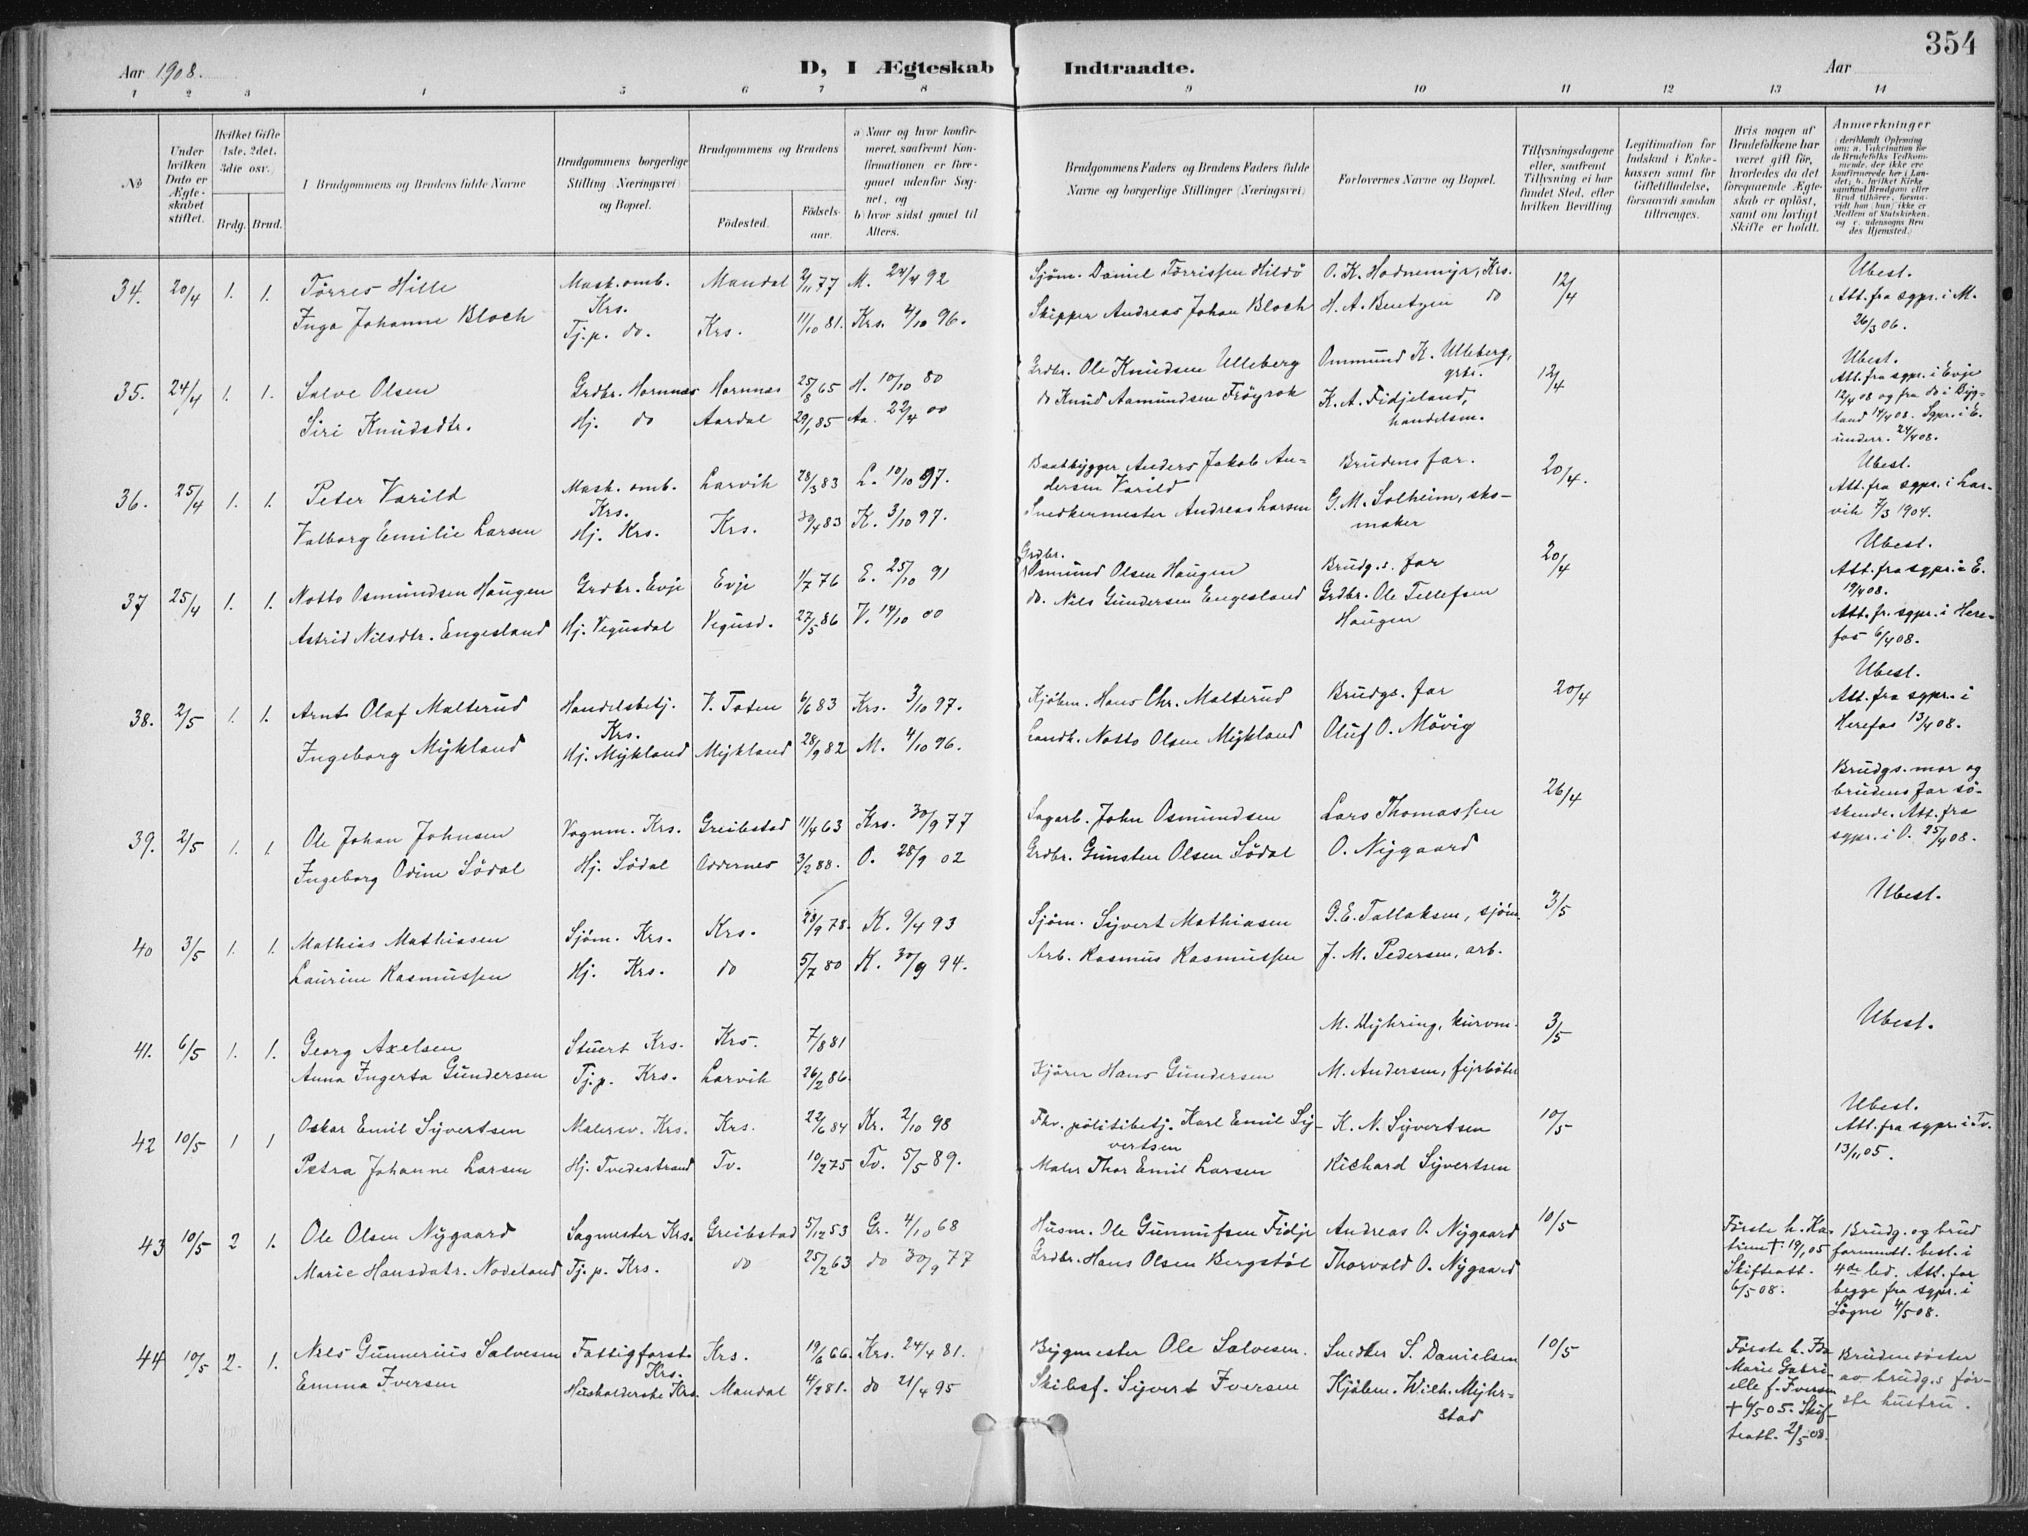 354
Aar 1908.
D, I Ægteskab Indtraadte.
Aar
1 2 3 4 5 6 7 8 9 10 11 12 13 14
No
Under hvilken Dato er Ægteskabet stiftet.
Hvilket Gifte (1ste, 2det, 3die osv.)
Brdg. Brud.
I Brudgommens og Brudens fulde Navne
Brudgommens borgerlige Stilling (Næringsvei) og Bopæl.
Brudgommens og Brudens
Födested.
Födselsaar.
a) Naar og hvor konfirmeret, saafremt Konfirmationen er foregaaet udenfor Sognet, og
b) hvor sidst gaaet til Alters.
Brudgommens Faders og Brudens Faders fulde Navne og borgerlige Stillinger (Næringsvei)
Forlovernes Navne og Bopæl.
Tillysningsdagene eller, saafremt Tillysning ei har fundet Sted, efter hvilken Bevilling
Legitimation for Indskud i Enkekassen samt for Giftetilladelse, forsaavidt saadan tiltrænges.
Hvis nogen af Brudefolkene har været gift för, hvorledes da det foregaaende Ægteskab er oplöst, samt om lovligt Skifte er holdt.
Anmærkninger
34. 20/4 1. 1. Tørres Hille Mask.omb. Krs. Mandal 2/11 77 M. 24/4 92 Sjøm. Daniel Tørrissen Hildö O. K. Hodnemyr, Krs. 12/4 Ubest. Att. fra sgpr. i M. 26/3 06.
Inga Johanne Bloch Tj.p. do. Krs. 11/10 81. Krs. 4/10 96. Skipper Andreas Johan Bloch H. A. Bentzen do
35. 24/4 1. 1. Salve Olsen Grdbr. Hornnes Hornnes 25/8 65 H. 10/10 80 Grdbr. Ole Knudsen Ulleberg Ommund K. Ulleberg, grbr. 12/4 Ubest. Att. fra sgpr. i Evje 12/4 08 og fra do i Bygland 14/4 08. Sgpr. i E. underr. 24/4 08.
Siri Knudsdtr. Hj. do Aardal 29/1 85 Aa. 22/4 00 do Knud Aamundsen Frøyrok K. A. Fidjeland, handelsm.
36. 25/4 1. 1. Peter Varild Mask. omb. Krs. Larvik 28/3 83 L. 10/10 97. Baatbygger Anders Jakob Andersen Varild Brudens far. 20/4. Ubest. Att. fra sgpr. i Larvik 7/3 1904.
Valborg Emilie Larsen Hj. Krs. Krs. 30/4 83 K. 3/10 97. Snedkermester Andreas Larsen G. M. Solheim, skomaker
37 25/4 1. 1. Notto Osmundsen Haugen Grdbr. Evje Evje 1/7 76 E. 25/10 91 Grdbr. Osmund Olsen Haugen Brudg.s. far 20/4 Ubest. Att. fra sgpr. i E. 19/4 08.
Astrid Nilsdtr. Engesland Hj. Vegusdal Vegusd. 27/5 86 V. 14/10 00 do. Nils Gundersen Engesland Grdbr. Ole Tellefsen Haugen Att. fr. sgpr. i Herefos 6/4 08.
38. 2/5 1. 1. Arnt Olaf Malterud Handelsbetj. Krs. V. Toten 6/6 83 Krs. 3/10 97. Kjøbm. Hans Chr. Malterud Brudgs. far 20/4 Ubest. Att. fra sgpr. i Herefos 13/4 08.
Ingeborg Mykland Hj. Mykland Mykland 28/9 82 M. 4/10 96. Landh. Notto Olsen Mykland Oluf O. Mövig
39. 2/5 1. 1. Ole Johan Johnsen Vognm. Krs. Greibstad 11/4 63 Krs. 30/9 77 Sagarb. John Osmundsen Lars Thomassen 26/4 Brudgs. mor og brudens far söskende. Att. fra sgpr. i O. 25/4 08.
Ingeborg Odine Södal Hj. Södal Oddernes 3/2 88. O. 28/9 02 Grdbr. Gunsten Olsen Södal O. Nygaard
40 3/5 1. 1. Mathias Mathiasen Sjøm. Krs. Krs. 28/9 78. K. 9/4 93 Sjøm. Syvert Mathiasen G. E. Tallaksen, sjøm. 3/5 Ubest.
Laurine Rasmussen Hj. Krs. do 5/7 80 K. 30/9 94. Arb. Rasmus Rasmussen J. M. Pedersen, arb.
41. 6/5 1. 1. Georg Axelsen Stuert Krs. Krs. 7/8 81 M. Myhring, kurvm. 3/5 Ubest.
Anna Ingerta Gundersen Tj.p. Krs. Larvik 26/2 86. Kjører Hans Gundersen M. Andersen, fyrböter
42 10/5 1 1 Oskar Emil Syvertsen Malersv. Krs. Krs. 22/6 84 Kr. 2/10 98 Fhv. politibetj. Karl Emil Syvertsen K. N. Syvertsen 10/5 Ubest. Att. fra sgpr. i Tv. 13/11 05.
Petra Johanne Larsen Hj. Tvedestrand Tv. 10/2 75 Tv. 5/5 89. Maler Thor Emil Larsen Richard Syvertsen
43 10/5 2 1. Ole Olsen Nygaard Sagmester Krs. Greibstad 5/12 53 Gr. 4/10 68 Husm. Ole Gunnufsen Fidje Andreas O. Nygaard 10/5 Første h. Katrine † 19/1 05 Skifteatt. 6/5 08. Brudg. og brud formentl. besl. i 4de led. Att. for begge fra sgpr. i Søgne 4/5 08.
Marie Hansdatr. Nodeland Tj.p. Krs. do 25/2 63 do 30/9 77 Grdbr. Hans Olsen Bergstøl Thorvald O. Nygaard
44 10/5 2. 1. Nils Gunnerius Salvesen Fattigforst. Krs. Krs. 19/6 66. Krs. 24/4 81. Bygmester Ole Salvesen. Snedker S. Danielsen 10/5 Første h. Ida Marie Gabrielle f. Iversen † 6/5 05. Skifteatt. 2/5 08. Bruden søster av brudg.s første hustru.
Emma Iversen Husholderske Krs. Mandal 4/2 81. do 21/4 95 Skibsf. Syvert Iversen Kjøbm. Wilh. Myhrstad